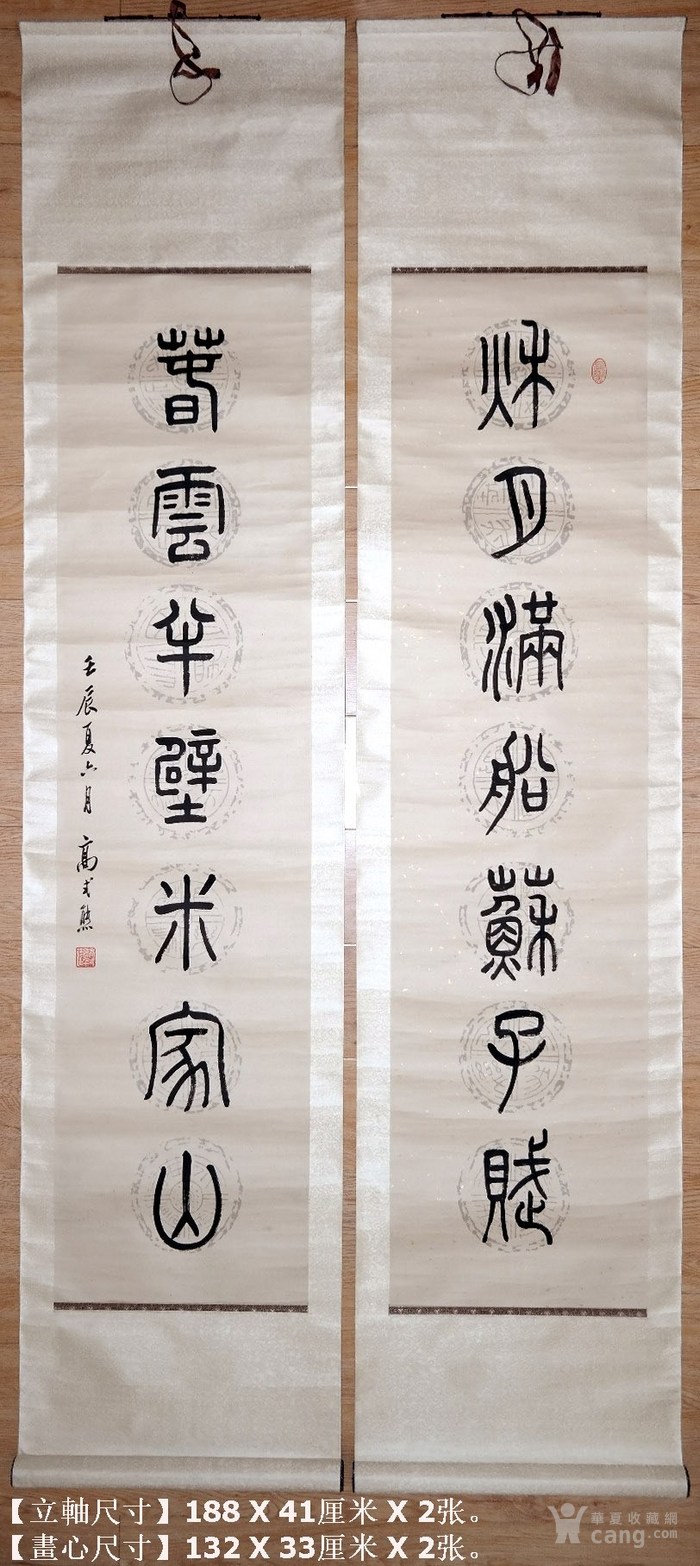 秌月滿船蘇子賦
萅雲半壁米家山
壬辰夏六月 高式熊
【立軸尺寸】188 X 41厘米 X 2张。
【畫心尺寸】132 X 33厘米 X 2张。
華夏收藏網
cang.com